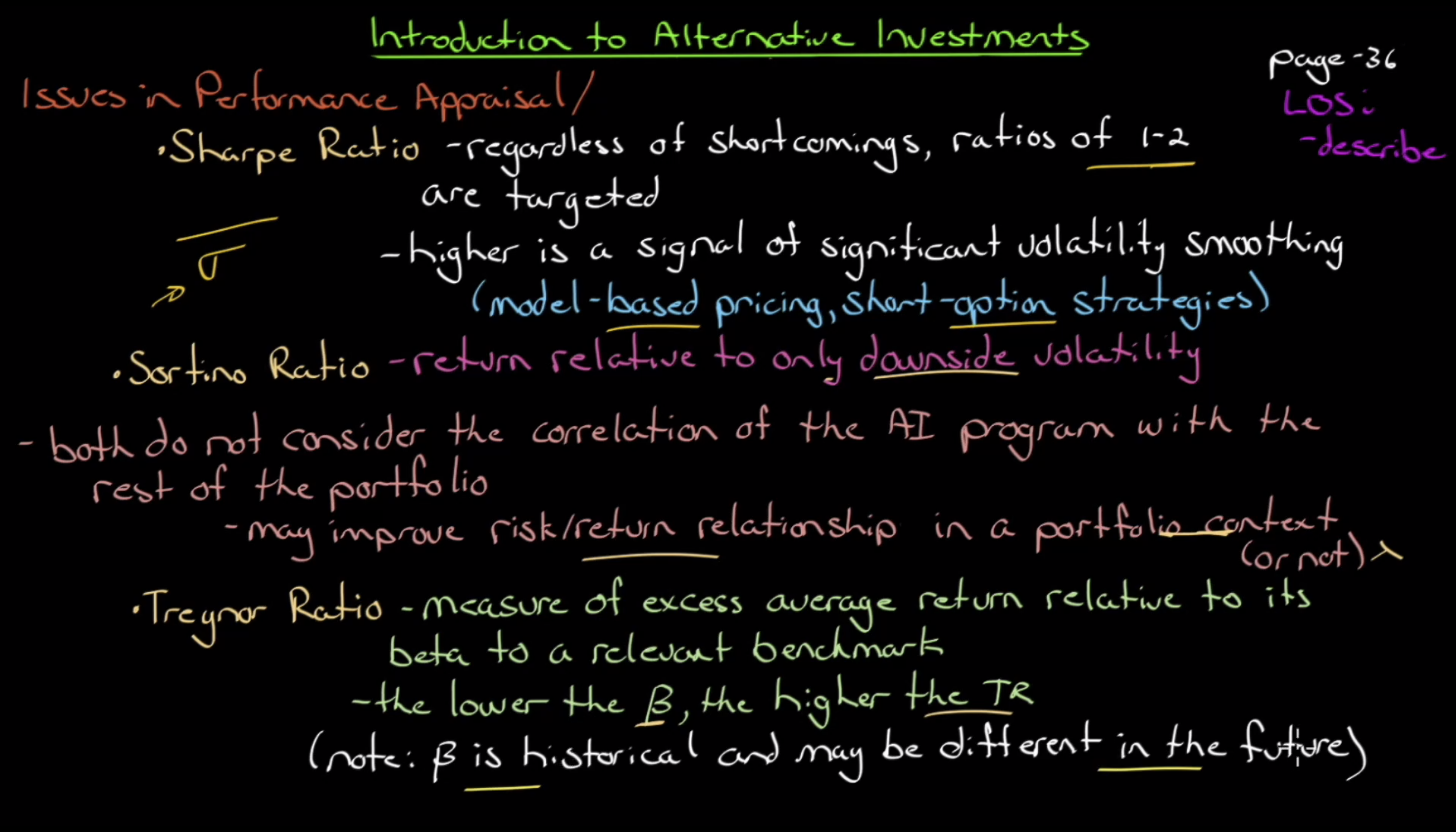 Introduction to Alternative Investments
page-36
LOS:
-describe
Issues in Performance Appraisal/
• Sharpe Ratio -regardless of shortcomings, ratios of 1-2
are targeted
σ
-higher is a signal of significant volatility smoothing
(model-based pricing, short-option strategies)
• Sortino Ratio -return relative to only downside volatility
- both do not consider the correlation of the AI program with the
rest of the portfolio
- may improve risk/return relationship in a portfolio context
(or not)
• Treynor Ratio -measure of excess average return relative to its
beta to a relevant benchmark
-the lower the β, the higher the TR
(note: β is historical and may be different in the future)